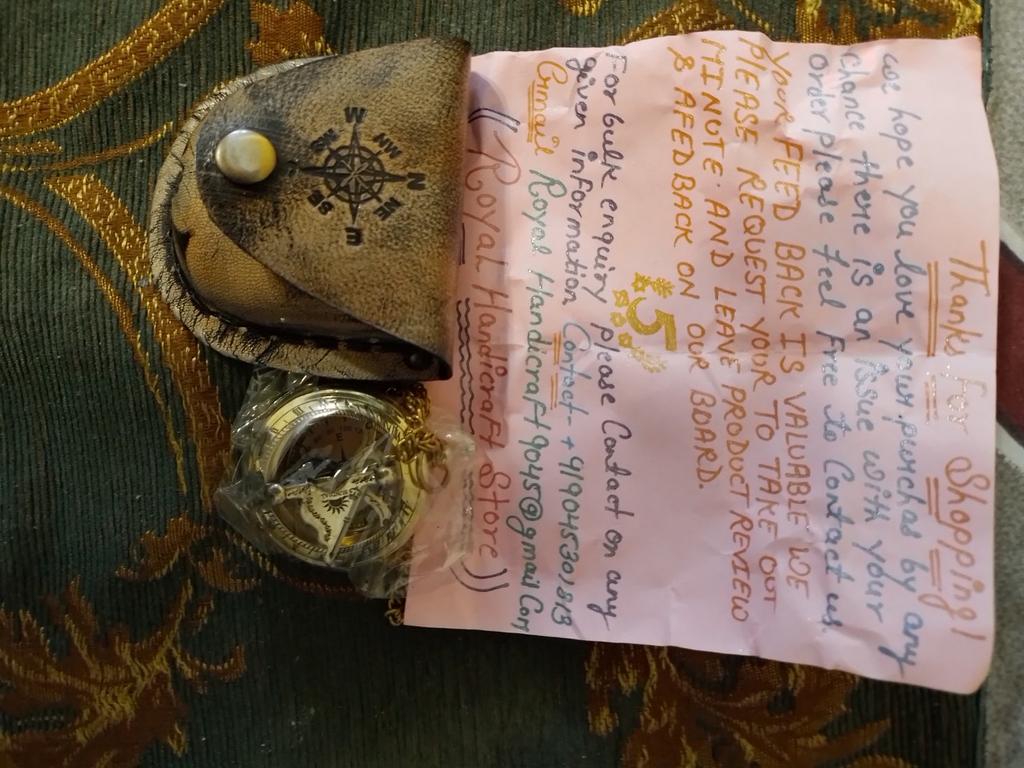 Thanks for Shopping!
we hope you love your purchas by any
chance there is an issue with your
order please feel free to Contact us.
YOUR FEED BACK IS VALUABLE WE
PLEASE REQUEST YOUR TO TAKE OUT
MINUTE. AND LEAVE PRODUCT REVIEW
& A FEED BACK ON OUR BOARD.
5
For bulk enquiry please Contact on any
given information Contact- +919045301813
Gmail Royal Handicraft9045@gmail Com
((Royal Handicraft Store))
N
NE
E
SE
W
NW